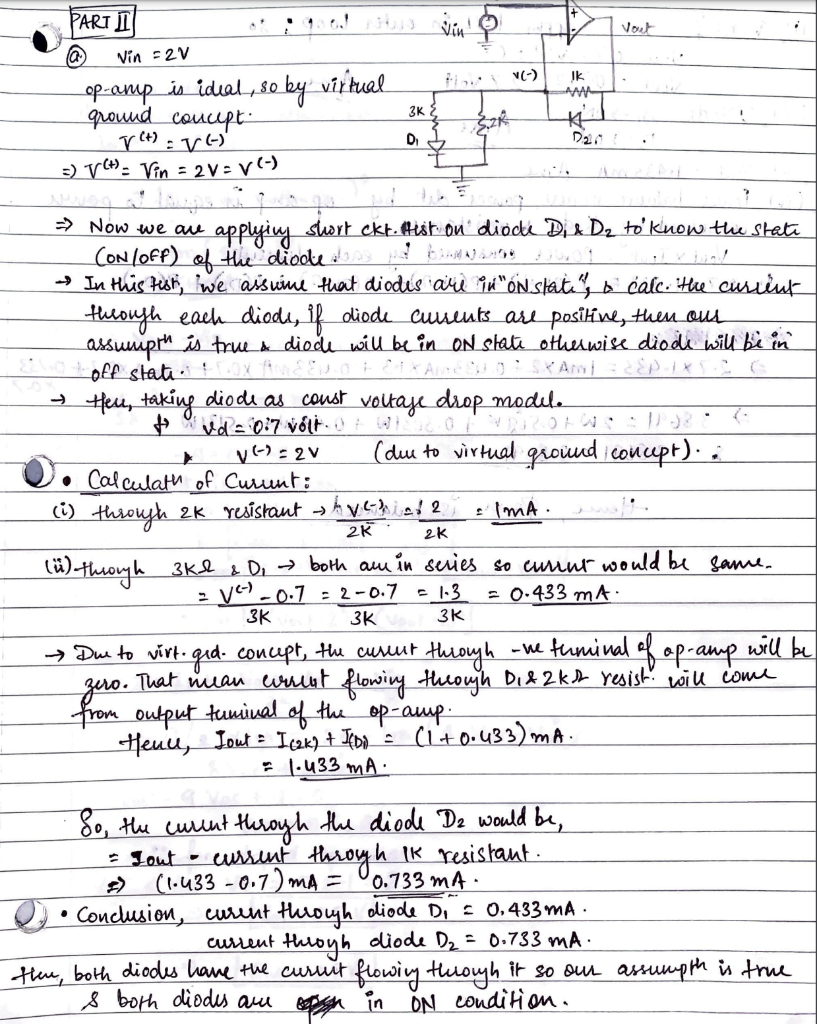 PART II
(a) Vin = 2V
op-amp is ideal, so by virtual
ground concept.
V(+) = V(-)
=) V(+) = Vin = 2V = V(-)
Vin
+
-
Vout
V(-)
1K
3K
2K
D1
D2
⇒ Now we are applying short ckt. test on diode D1 & D2 to know the state
(ON/OFF) of the diode.
→ In this test, we assume that diodes are in "ON state", & calc. the current
through each diode, if diode currents are positive, then our
assumptn is true & diode will be in ON state otherwise diode will be in
off state.
→ Here, taking diode as const voltage drop model.
Vd = 0.7 volt
V(-) = 2V (due to virtual ground concept).
• Calculatn of Current:
(i) through 2K resistant → V(-)/2K = 2/2K = 1mA.
(ii) through 3KΩ & D1 → both are in series so current would be same.
= V(-) - 0.7/3K = 2-0.7/3K = 1.3/3K = 0.433 mA.
→ Due to virt. grd. concept, the current through -ve terminal of op-amp will be
zero. That mean current flowing through D1 & 2kΩ resist. will come
from output terminal of the op-amp.
Hence, Iout = I(2K) + I(D1) = (1 + 0.433) mA.
= 1.433 mA.
So, the current through the diode D2 would be,
= Iout - current through 1K resistant.
=> (1.433 - 0.7) mA = 0.733 mA.
• Conclusion, current through diode D1 = 0.433 mA.
current throyh diode D2 = 0.733 mA.
Here, both diodes have the current flowing through it so our assumptn is true
& both diodes are in ON condition.